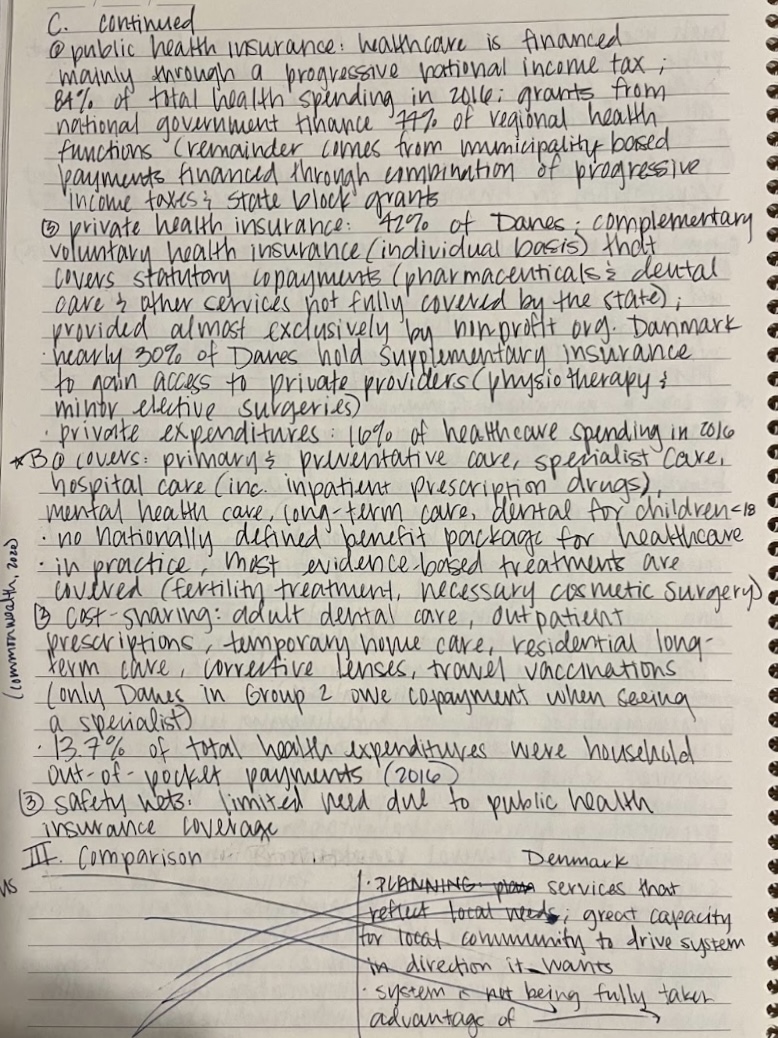 C. continued
@ public health insurance: healthcare is financed
mainly through a progressive national income tax;
84% of total health spending in 2016; grants from
national government finance 77% of regional health
functions (remainder comes from municipality based
payments financed through combination of progressive
income taxes & state block grants
⑤ private health insurance: 42% of Danes; complementary
voluntary health insurance (individual basis) that
covers statutory copayments (pharmaceuticals & dental
care & other services not fully covered by the state);
provided almost exclusively by nonprofit org. Danmark
· nearly 30% of Danes hold supplementary insurance
to gain access to private providers (physiotherapy &
minor elective surgeries)
· private expenditures: 16% of healthcare spending in 2016
*B① covers: primary & preventative care, specialist care,
hospital care (inc. inpatient prescription drugs),
mental health care, long-term care, dental for children <18
· no nationally defined benefit package for healthcare
· in practice, most evidence-based treatments are
covered (fertility treatment, necessary cosmetic surgery)
(commonwealth, 2020)
② cost-sharing: adult dental care, outpatient
prescriptions, temporary home care, residential long-
term care, corrective lenses, travel vaccinations
(only Danes in Group 2 owe copayment when seeing
a specialist)
· 13.7% of total health expenditures were household
out-of-pocket payments (2016)
③ safety nets: limited need due to public health
insurance coverage
III. Comparison
Denmark
US
· PLANNING services that
reflect local needs; great capacity
for local community to drive system
in direction it wants
· system is not being fully taken
advantage of